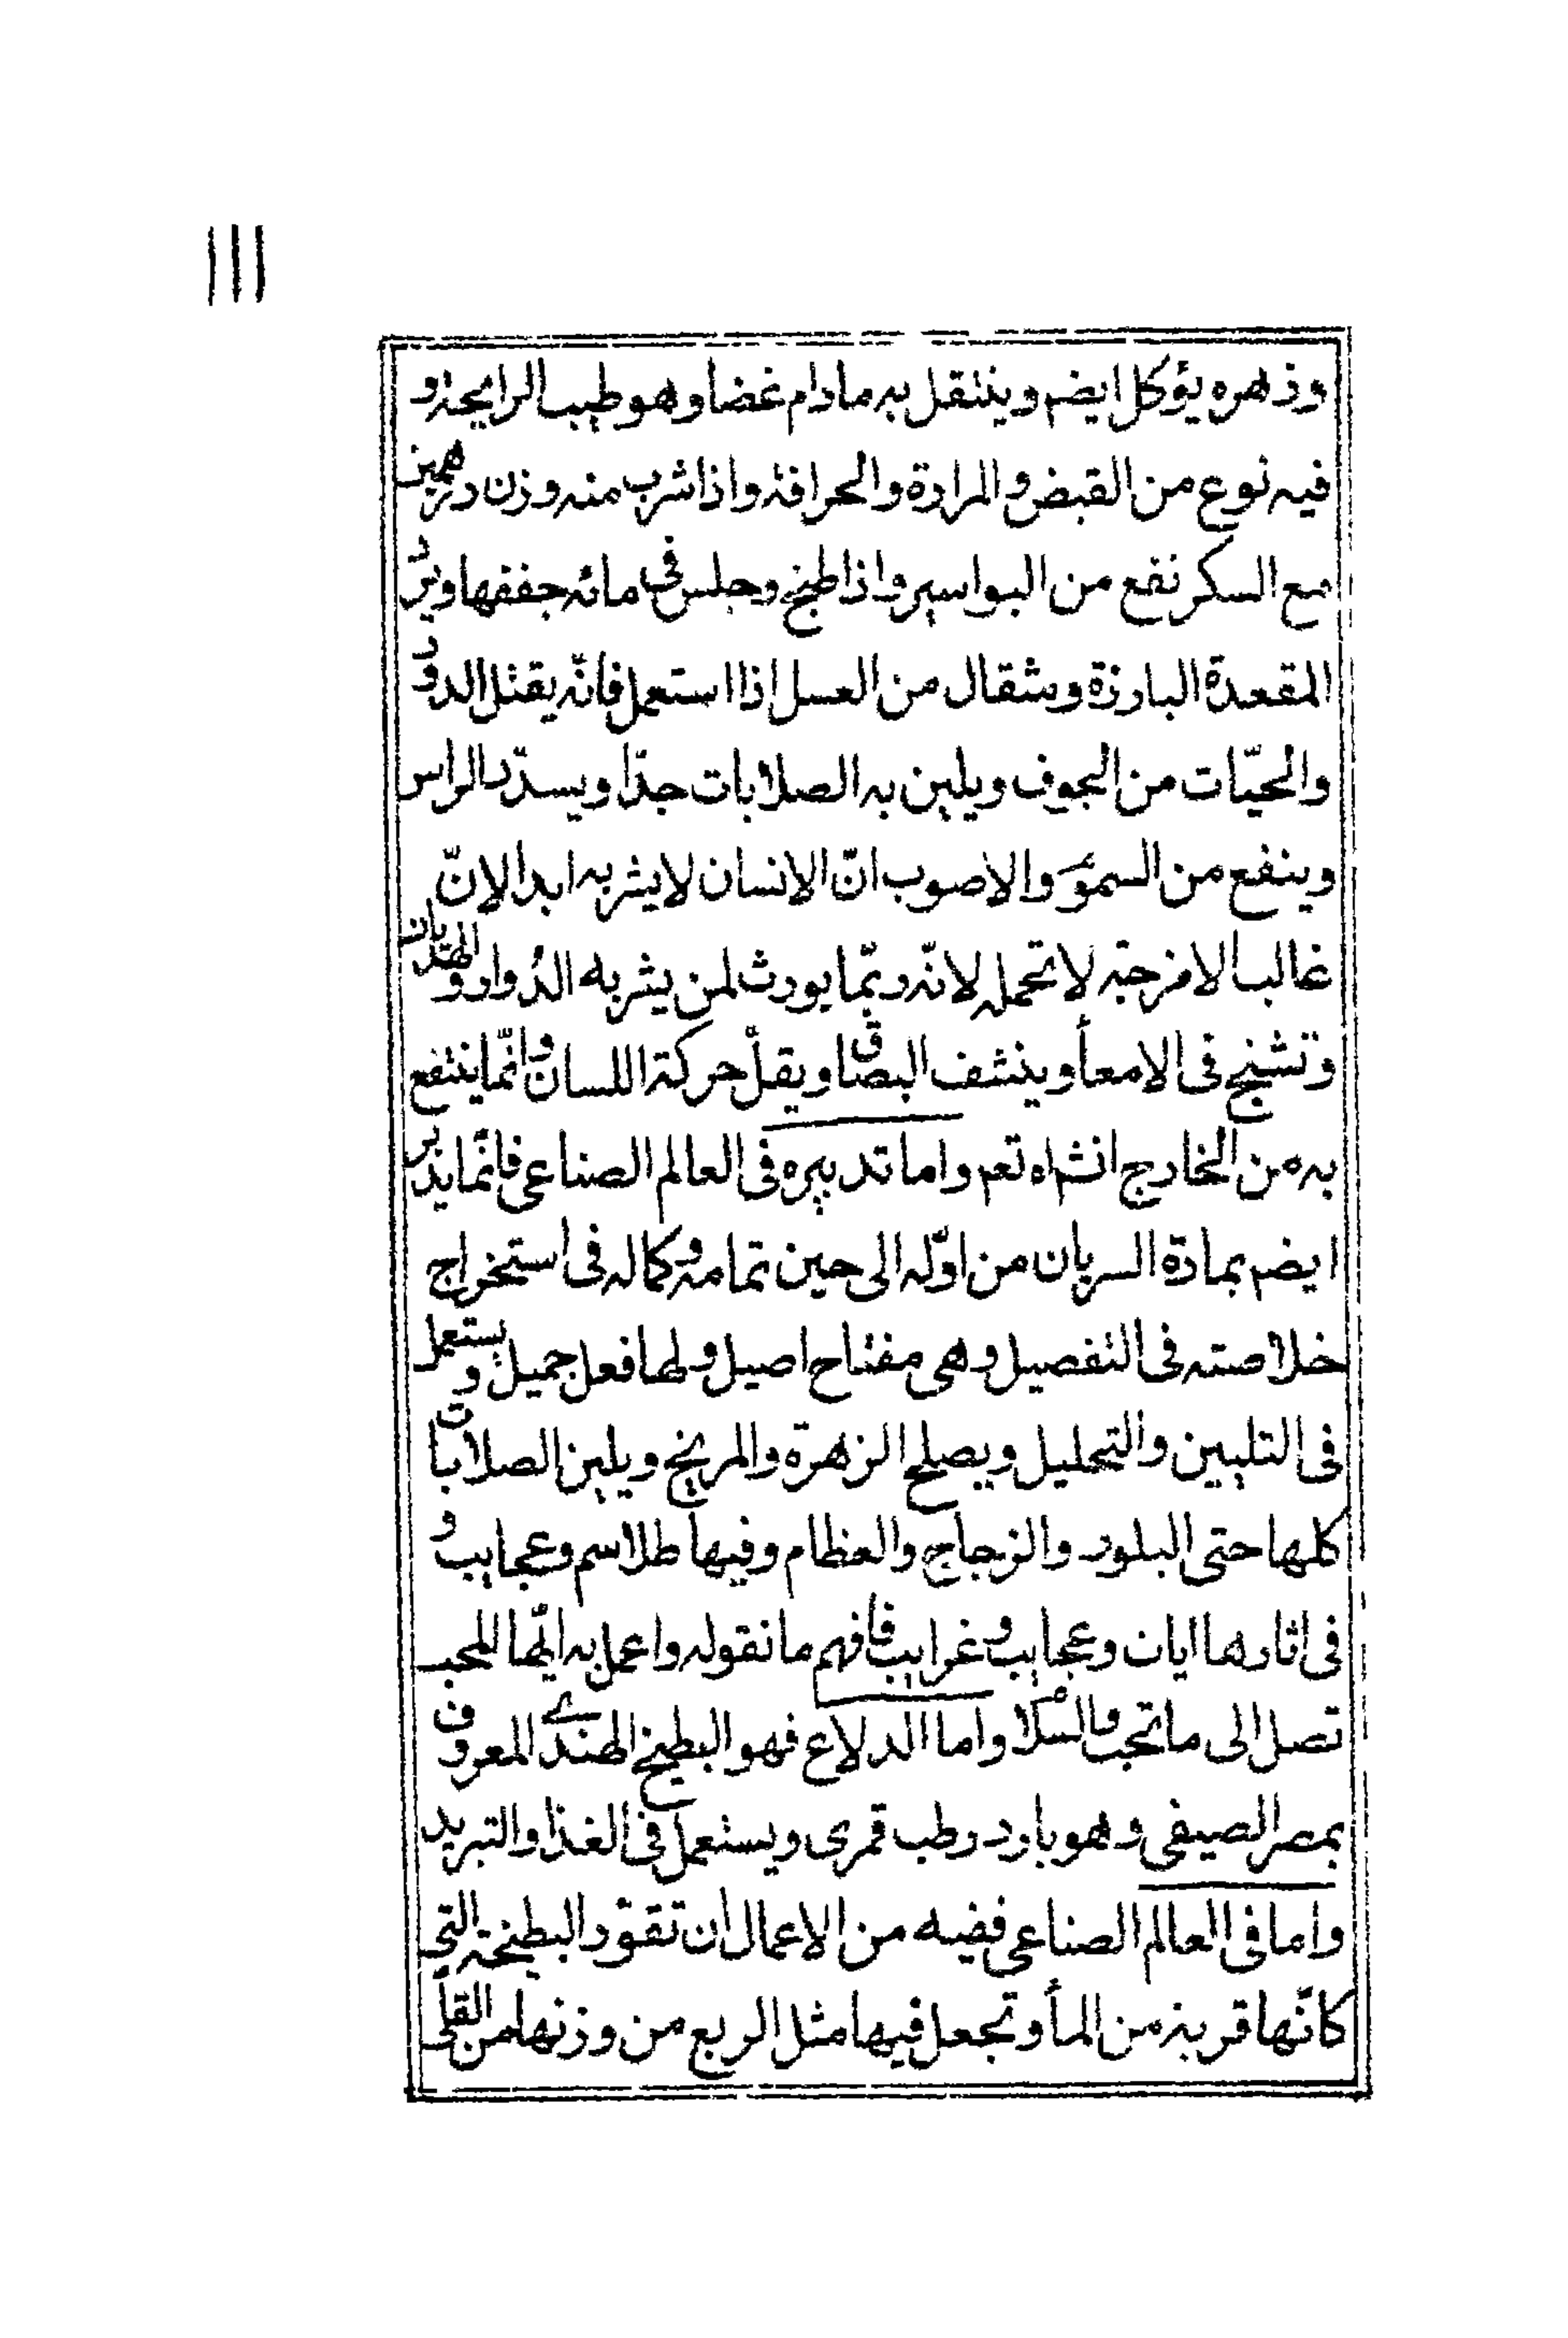 ١١١
وزهره يؤكل ايضم وينتقل به مادام غضا وهو طيب الرايحة و
فيه نوع من القبض والمرارة والحرافة واذا شرب منه وزن درهمين
مع السكر نفع من البواسير واذا طبخ وجلس فى مائه جففها ويرد
المقعدة البارزة ومثقال من العسل اذا استعمل فانّه يقتل الدود
والحيّات من الجوف ويلين به الصلابات جدّا ويسدّد الراس
وينفع من السموم والاصوب انّ الانسان لا يشربه ابدا لانّ
غالب الامزجة لا تحمله لانّه ربّما يورث لمن يشربه الدُوار والهذيان
وتشنج فى الامعأ وينشف البصاق ويقلّ حركة اللسان وانّما ينتفع
به من الخارج انشاه تعم واما تدبيره فى العالم الصناعى فانّما يدبر
ايضم بمادّة السريان من اوّله الى حين تمامه وكماله فى استخراج
خلاصته فى التفصيل وهى مفتاح اصيل ولها فعل جميل ويستعمل
فى التليين والتحليل ويصلح الزهرة والمريخ ويلين الصلابات
كلها حتى البلور والزجاج والعظام وفيها طلاسم وعجايب و
فى اثارها ايات وعجايب وغرايب فافهم ما نقوله واعمل به ايّها المحب
تصل الى ما تحب والسّلام واما الدلاع فهو البطيخ الهندى المعروف
بمصر الصيفى وهو بارد رطب قمرى ويستعمل فى الغذا والتبريد
واما فى العالم الصناعى ففيه من الاعمال ان تقوّر البطيخة التى
كانّها قربة من المأ وتجعل فيها مثل الربع من وزنها من القلى